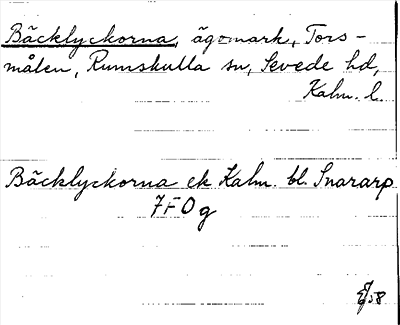 Bäcklyckorna, ägomark, Tors-
målen, Rumskulla sn, Sevede hd,
Kalm. l.
Bäcklyckorna ek Kalm. bl. Snararp
7F0g